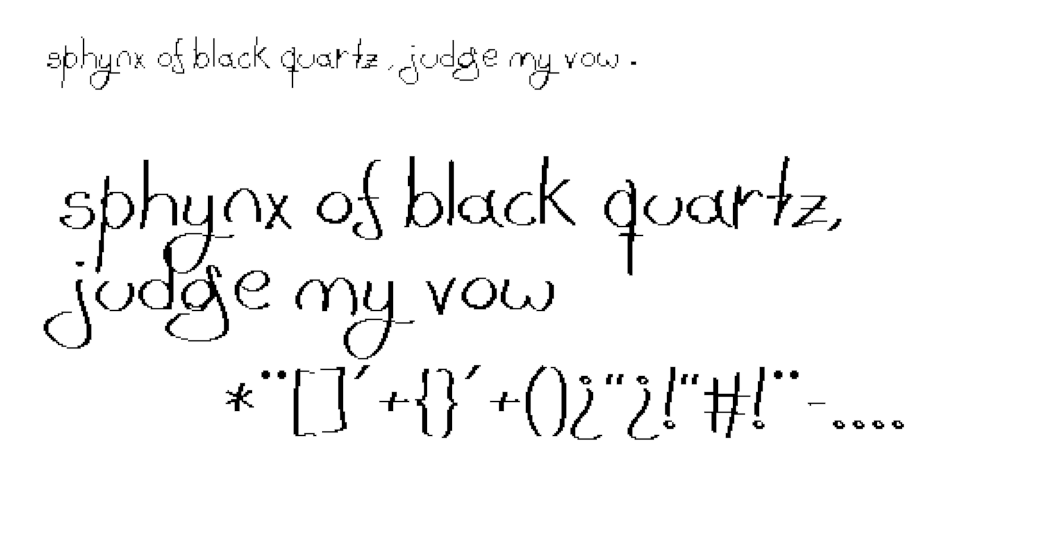 sphynx of black quartz, judge my vow.
sphynx of black quartz,
judge my vow
*¨[]´+{}´+()¿"¿!"#!¨-....